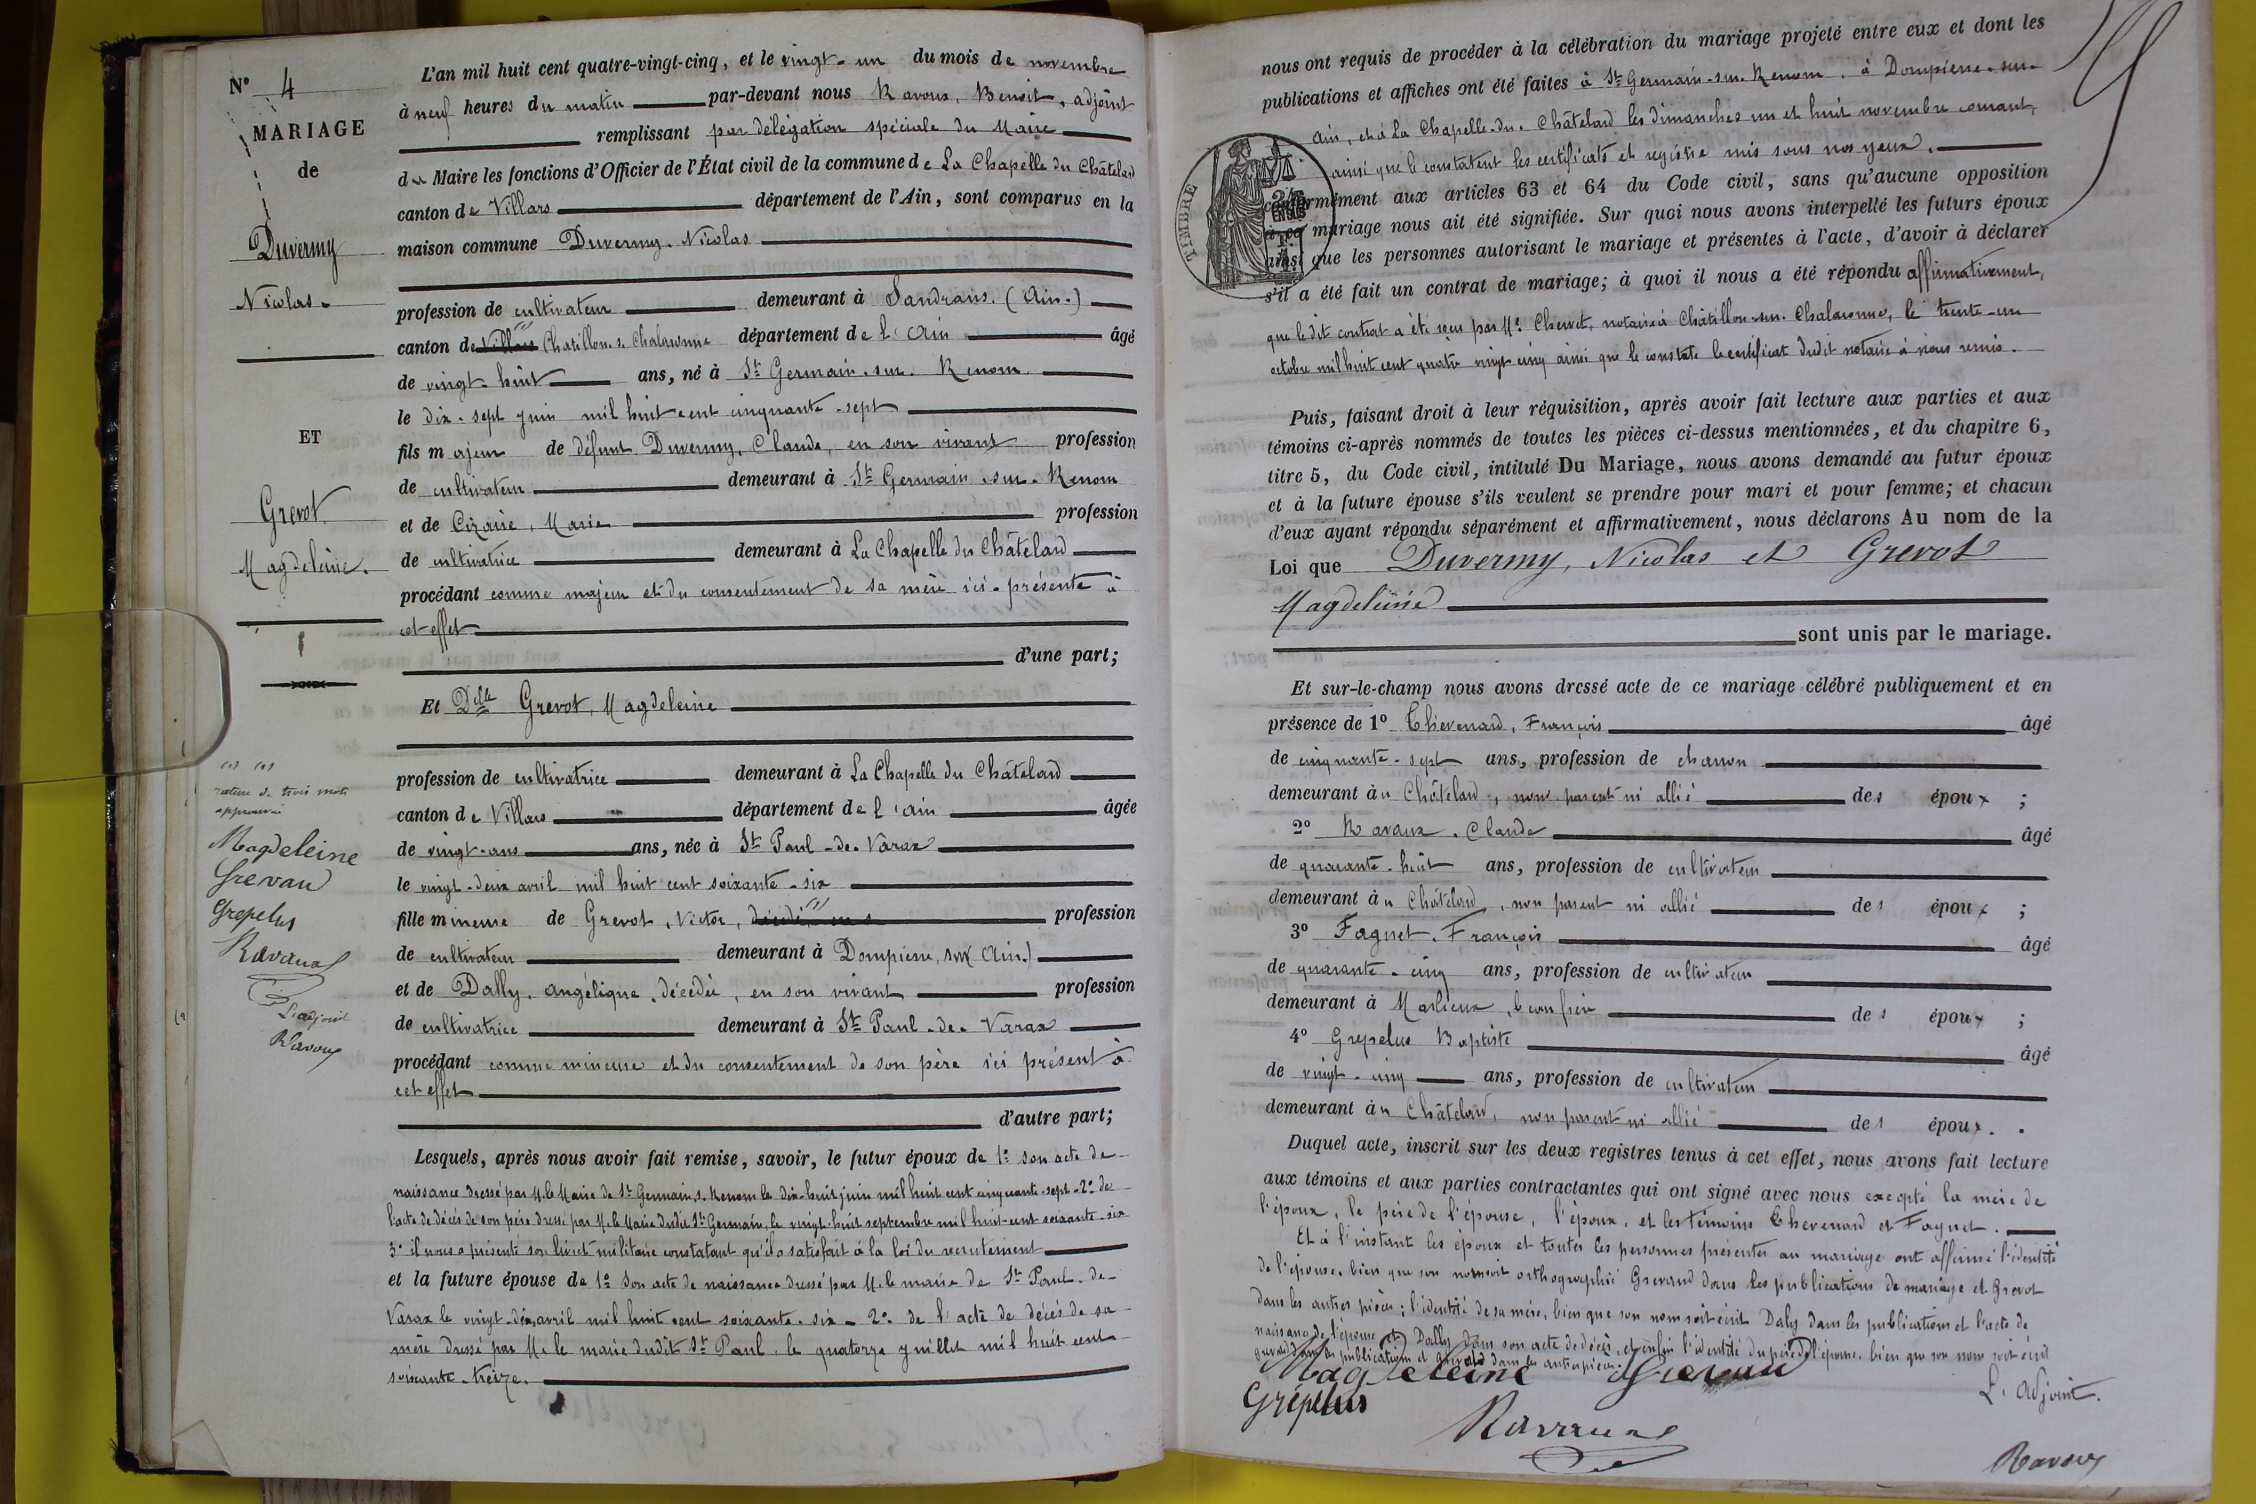 N° 4
MARIAGE
de
Duvermy
Nicolas.
ET
Grevot
Magdeleine.
rature de trois mots
approuvé
Magdeleine
Grevau
Grepelus
Ravaux
L'adjoint
Ravoux
L'an mil huit cent quatre-vingt-cinq, et le vingt-un du mois de novembre
à neuf heures du matin par-devant nous Ravoux, Benoit, adjoint
remplissant par délégation spéciale du Maire
du Maire les fonctions d'Officier de l'État civil de la commune de La Chapelle du Châtelard
canton de Villars département de l'Ain, sont comparus en la
maison commune Duvermy. Nicolas
profession de cultivateur demeurant à Sandrans. (Ain.)
canton de Villars Chatillon. s. Chalaronne département de l'Ain âgé
de vingt-huit ans, né à St Germain-sur-Renom
le dix-sept juin mil huit cent cinquante-sept
fils majeur de défunt Duvermy, Claude, en son vivant profession
de cultivateur demeurant à St Germain-sur-Renom
et de Cizaire, Marie profession
de cultivatrice demeurant à La Chapelle du Châtelard
procédant comme majeur et du consentement de sa mère ici-présente à
cet effet
d'une part;
Et Dlle Grevot, Magdeleine
profession de cultivatrice demeurant à La Chapelle du Châtelard
canton de Villars département de l'Ain âgée
de vingt-ans ans, née à St Paul-de-Varax
le vingt-deux avril mil huit cent soixante-six
fille mineure de Grevot, Victor, profession
de cultivateur demeurant à Dompierre, sur (Ain.)
et de Dally, angélique, décédée, en son vivant profession
de cultivatrice demeurant à St Paul-de-Varax
procédant comme mineure et du consentement de son père ici présent à
cet effet
d'autre part;
Lesquels, après nous avoir fait remise, savoir, le futur époux de 1° son acte de
naissance dressé par M. le Maire de St Germain. s. Renom le dix-huit juin mil huit cent cinquante-sept - 2° de
l'acte de décès de son père dressé par M. le Maire dudit St Germain, le vingt-huit septembre mil huit-cent soixante-six
3° il nous a présenté son livret militaire constatant qu'il a satisfait à la loi du recrutement
et la future épouse de 1° Son acte de naissance dressé par M. le maire de St Paul-de-
Varax le vingt-deux avril mil huit cent soixante-six - 2° de l'acte de décès de sa
mère dressé par M. le maire dudit St Paul, le quatorze juillet mil huit cent
soixante-treize.
nous ont requis de procéder à la célébration du mariage projeté entre eux et dont les
publications et affiches ont été faites à St Germain-sur-Renom, à Dompierre-sur-
Ain, et à La Chapelle-du-Châtelard les dimanches un et huit novembre courant,
ainsi que le constatent les certificats et registre mis sous nos yeux,
TIMBRE
conformément aux articles 63 et 64 du Code civil, sans qu'aucune opposition
à ce mariage nous ait été signifiée. Sur quoi nous avons interpellé les futurs époux
ainsi que les personnes autorisant le mariage et présentes à l'acte, d'avoir à déclarer
s'il a été fait un contrat de mariage; à quoi il nous a été répondu affirmativement,
que le dit contrat a été reçu par Me Chervet, notaire à Châtillon-sur-Chalaronne, le trente-un
octobre mil huit cent quatre vingt cinq ainsi que le constate le certificat dudit notaire à nous remis.
Puis, faisant droit à leur réquisition, après avoir fait lecture aux parties et aux
témoins ci-après nommés de toutes les pièces ci-dessus mentionnées, et du chapitre 6,
titre 5, du Code civil, intitulé Du Mariage, nous avons demandé au futur époux
et à la future épouse s'ils veulent se prendre pour mari et pour femme; et chacun
d'eux ayant répondu séparément et affirmativement, nous déclarons Au nom de la
Loi que Duvermy, Nicolas et Grevot
Magdeleine
sont unis par le mariage.
Et sur-le-champ nous avons dressé acte de ce mariage célébré publiquement et en
présence de 1° Thevenard, François âgé
de cinquante-sept ans, profession de charron
demeurant au Châtelard, non parent ni allié des époux ;
2° Ravaux. Claude âgé
de quarante-huit ans, profession de cultivateur
demeurant au Châtelard, non parent ni allié des époux ;
3° Fagnet. François âgé
de quarante-cinq ans, profession de cultivateur
demeurant à Marlieux, beau frère des époux ;
4° Grepelus Baptiste âgé
de vingt-cinq ans, profession de cultivateur
demeurant au Châtelard, non parent ni allié des époux.
Duquel acte, inscrit sur les deux registres tenus à cet effet, nous avons fait lecture
aux témoins et aux parties contractantes qui ont signé avec nous excepté la mère de
l'époux, le père de l'épouse, l'époux, et les témoins Thevenard et Fagnet.
Et à l'instant les époux et toutes les personnes présentes au mariage ont affirmé l'identité
de l'épouse, bien que son nom soit orthographié Grevand dans les publications de mariage et Grevot
dans les autres pièces; l'identité de sa mère, bien que son nom soit écrit Daly dans les publications et l'acte de
naissance de l'épouse et Dally dans son acte de décès, et enfin l'identité du père de l'épouse, bien que son nom soit écrit
dans les publications et dans les autres pièces.
Magdeleine Grevau
Grépelus
L'Adjoint.
Ravaux
Ravoux